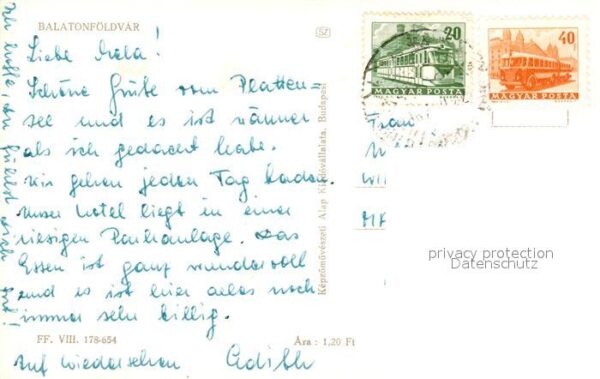 BALATONFÖLDVÁR
SZ
Liebe Mela!
Schöne Grüße vom Platten=
see und es ist wärmer
als ich gedacht habe.
Wir gehen jeden Tag baden.
Unser Hotel liegt in einer
riesigen Parkanlage. Das
Essen ist ganz wundervoll
und es ist hier alles noch
immer sehr billig.
Auf Wiedersehen Edith
Ich hoffe du fühlst dich gut!
FF. VIII. 178-654
Ára: 1,20 Ft
Képzőművészeti Alap Kiadóvállalata, Budapest
20
MAGYAR POSTA
40
MAGYAR POSTA
Frau
privacy protection
Datenschutz